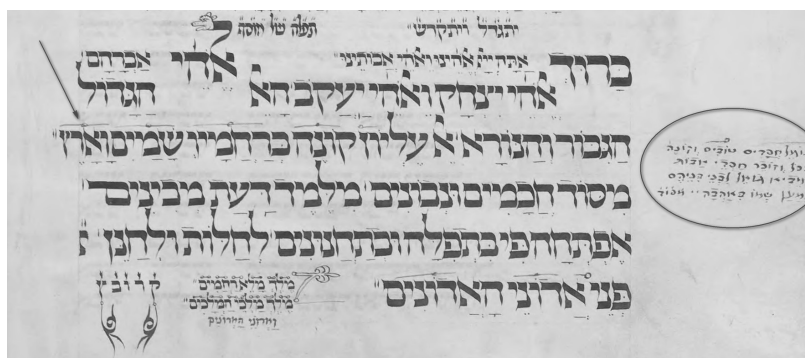 יתגדל ויתקדש תפלה של מוסף
ברוך אתה ייי אלהינו ואלהי אבותינו אלהי אברהם
אלהי יצחק ואלהי יעקב האל הגדול
הגבור והנורא אל עליון קונה ברחמיו שמים וארץ
מסוד חכמים ונבונים מלמד דעת מבינים
אפתחה פי בתפלה ובתחנונים לחלות ולחנן
פני אדוני האדונים
מלך מלא רחמים
מלך מלכי המלכים
ואדוני האדונים
קרובץ
חסדים טובים וקונה
וזוכר חסדי אבות
גואל לבני בניהם
למען שמו באהבה